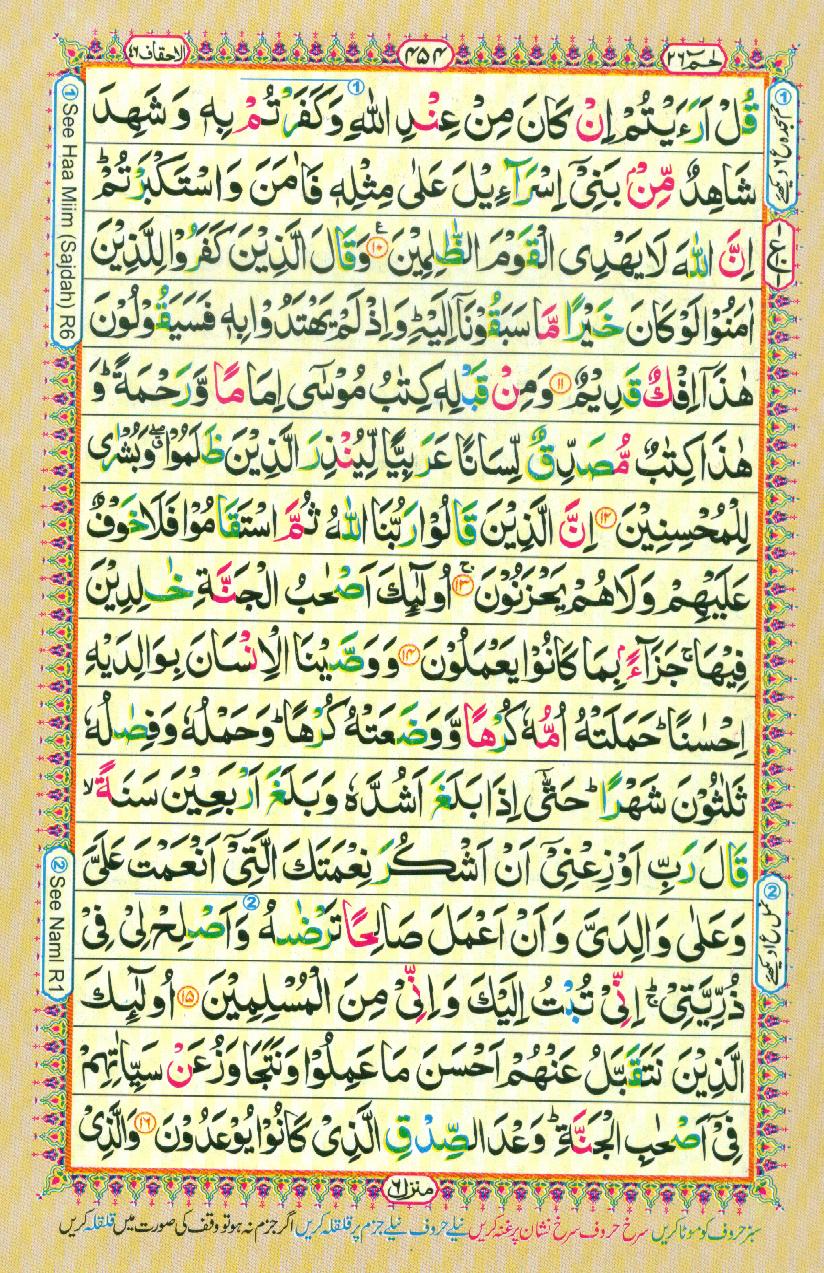 الاحقاف ٤٦
٤٥٤
حٰمٓ ٢٦
قُلْ اَرَءَيْتُمْ اِنْ كَانَ مِنْ عِنْدِ اللّٰهِ وَكَفَرْتُمْ بِهٖ وَ شَهِدَ
شَاهِدٌ مِّنْۢ بَنِيْۤ اِسْرَآءِيْلَ عَلٰى مِثْلِهٖ فَاٰمَنَ وَ اسْتَكْبَرْتُمْ ؕ
اِنَّ اللّٰهَ لَا يَهْدِى الْقَوْمَ الظّٰلِمِيْنَ ۝١٠ وَ قَالَ الَّذِيْنَ كَفَرُوْا لِلَّذِيْنَ
اٰمَنُوْا لَوْ كَانَ خَيْرًا مَّا سَبَقُوْنَاۤ اِلَيْهِ ؕ وَ اِذْ لَمْ يَهْتَدُوْا بِهٖ فَسَيَقُوْلُوْنَ
هٰذَاۤ اِفْكٌ قَدِيْمٌ ۝١١ وَ مِنْ قَبْلِهٖ كِتٰبُ مُوْسٰۤى اِمَامًا وَّ رَحْمَةً ؕ وَ
هٰذَا كِتٰبٌ مُّصَدِّقٌ لِّسَانًا عَرَبِيًّا لِّيُنْذِرَ الَّذِيْنَ ظَلَمُوْا ۖۗ وَ بُشْرٰى
لِلْمُحْسِنِيْنَ ۝١٢ اِنَّ الَّذِيْنَ قَالُوْا رَبُّنَا اللّٰهُ ثُمَّ اسْتَقَامُوْا فَلَا خَوْفٌ
عَلَيْهِمْ وَ لَا هُمْ يَحْزَنُوْنَ ۝١٣ اُولٰٓئِكَ اَصْحٰبُ الْجَنَّةِ خٰلِدِيْنَ
فِيْهَا ۚ جَزَآءًۢ بِمَا كَانُوْا يَعْمَلُوْنَ ۝١٤ وَ وَصَّيْنَا الْاِنْسَانَ بِوَالِدَيْهِ
اِحْسٰنًا ؕ حَمَلَتْهُ اُمُّهٗ كُرْهًا وَّ وَضَعَتْهُ كُرْهًا ؕ وَ حَمْلُهٗ وَ فِصٰلُهٗ
ثَلٰثُوْنَ شَهْرًا ؕ حَتّٰۤى اِذَا بَلَغَ اَشُدَّهٗ وَ بَلَغَ اَرْبَعِيْنَ سَنَةً ۙ
قَالَ رَبِّ اَوْزِعْنِيْۤ اَنْ اَشْكُرَ نِعْمَتَكَ الَّتِيْۤ اَنْعَمْتَ عَلَيَّ
وَ عَلٰى وَالِدَيَّ وَ اَنْ اَعْمَلَ صَالِحًا تَرْضٰىهُ وَ اَصْلِحْ لِيْ فِيْ
ذُرِّيَّتِيْ ؕۚ اِنِّيْ تُبْتُ اِلَيْكَ وَ اِنِّيْ مِنَ الْمُسْلِمِيْنَ ۝١٥ اُولٰٓئِكَ
الَّذِيْنَ نَتَقَبَّلُ عَنْهُمْ اَحْسَنَ مَا عَمِلُوْا وَ نَتَجَاوَزُ عَنْ سَيِّاٰتِهِمْ
فِيْۤ اَصْحٰبِ الْجَنَّةِ ؕ وَعْدَ الصِّدْقِ الَّذِيْ كَانُوْا يُوْعَدُوْنَ ۝١٦ وَ الَّذِيْ
منزل ٦
سبز حروف کو موٹا کریں سرخ حروف سرخ نشان پر غنہ کریں نیلے حروف نیلے جزم پر قلقلہ کریں اگر جزم نہ ہو تو وقف کی صورت میں قلقلہ کریں
① See Haa Miim (Sajdah) R6
② See Naml R1